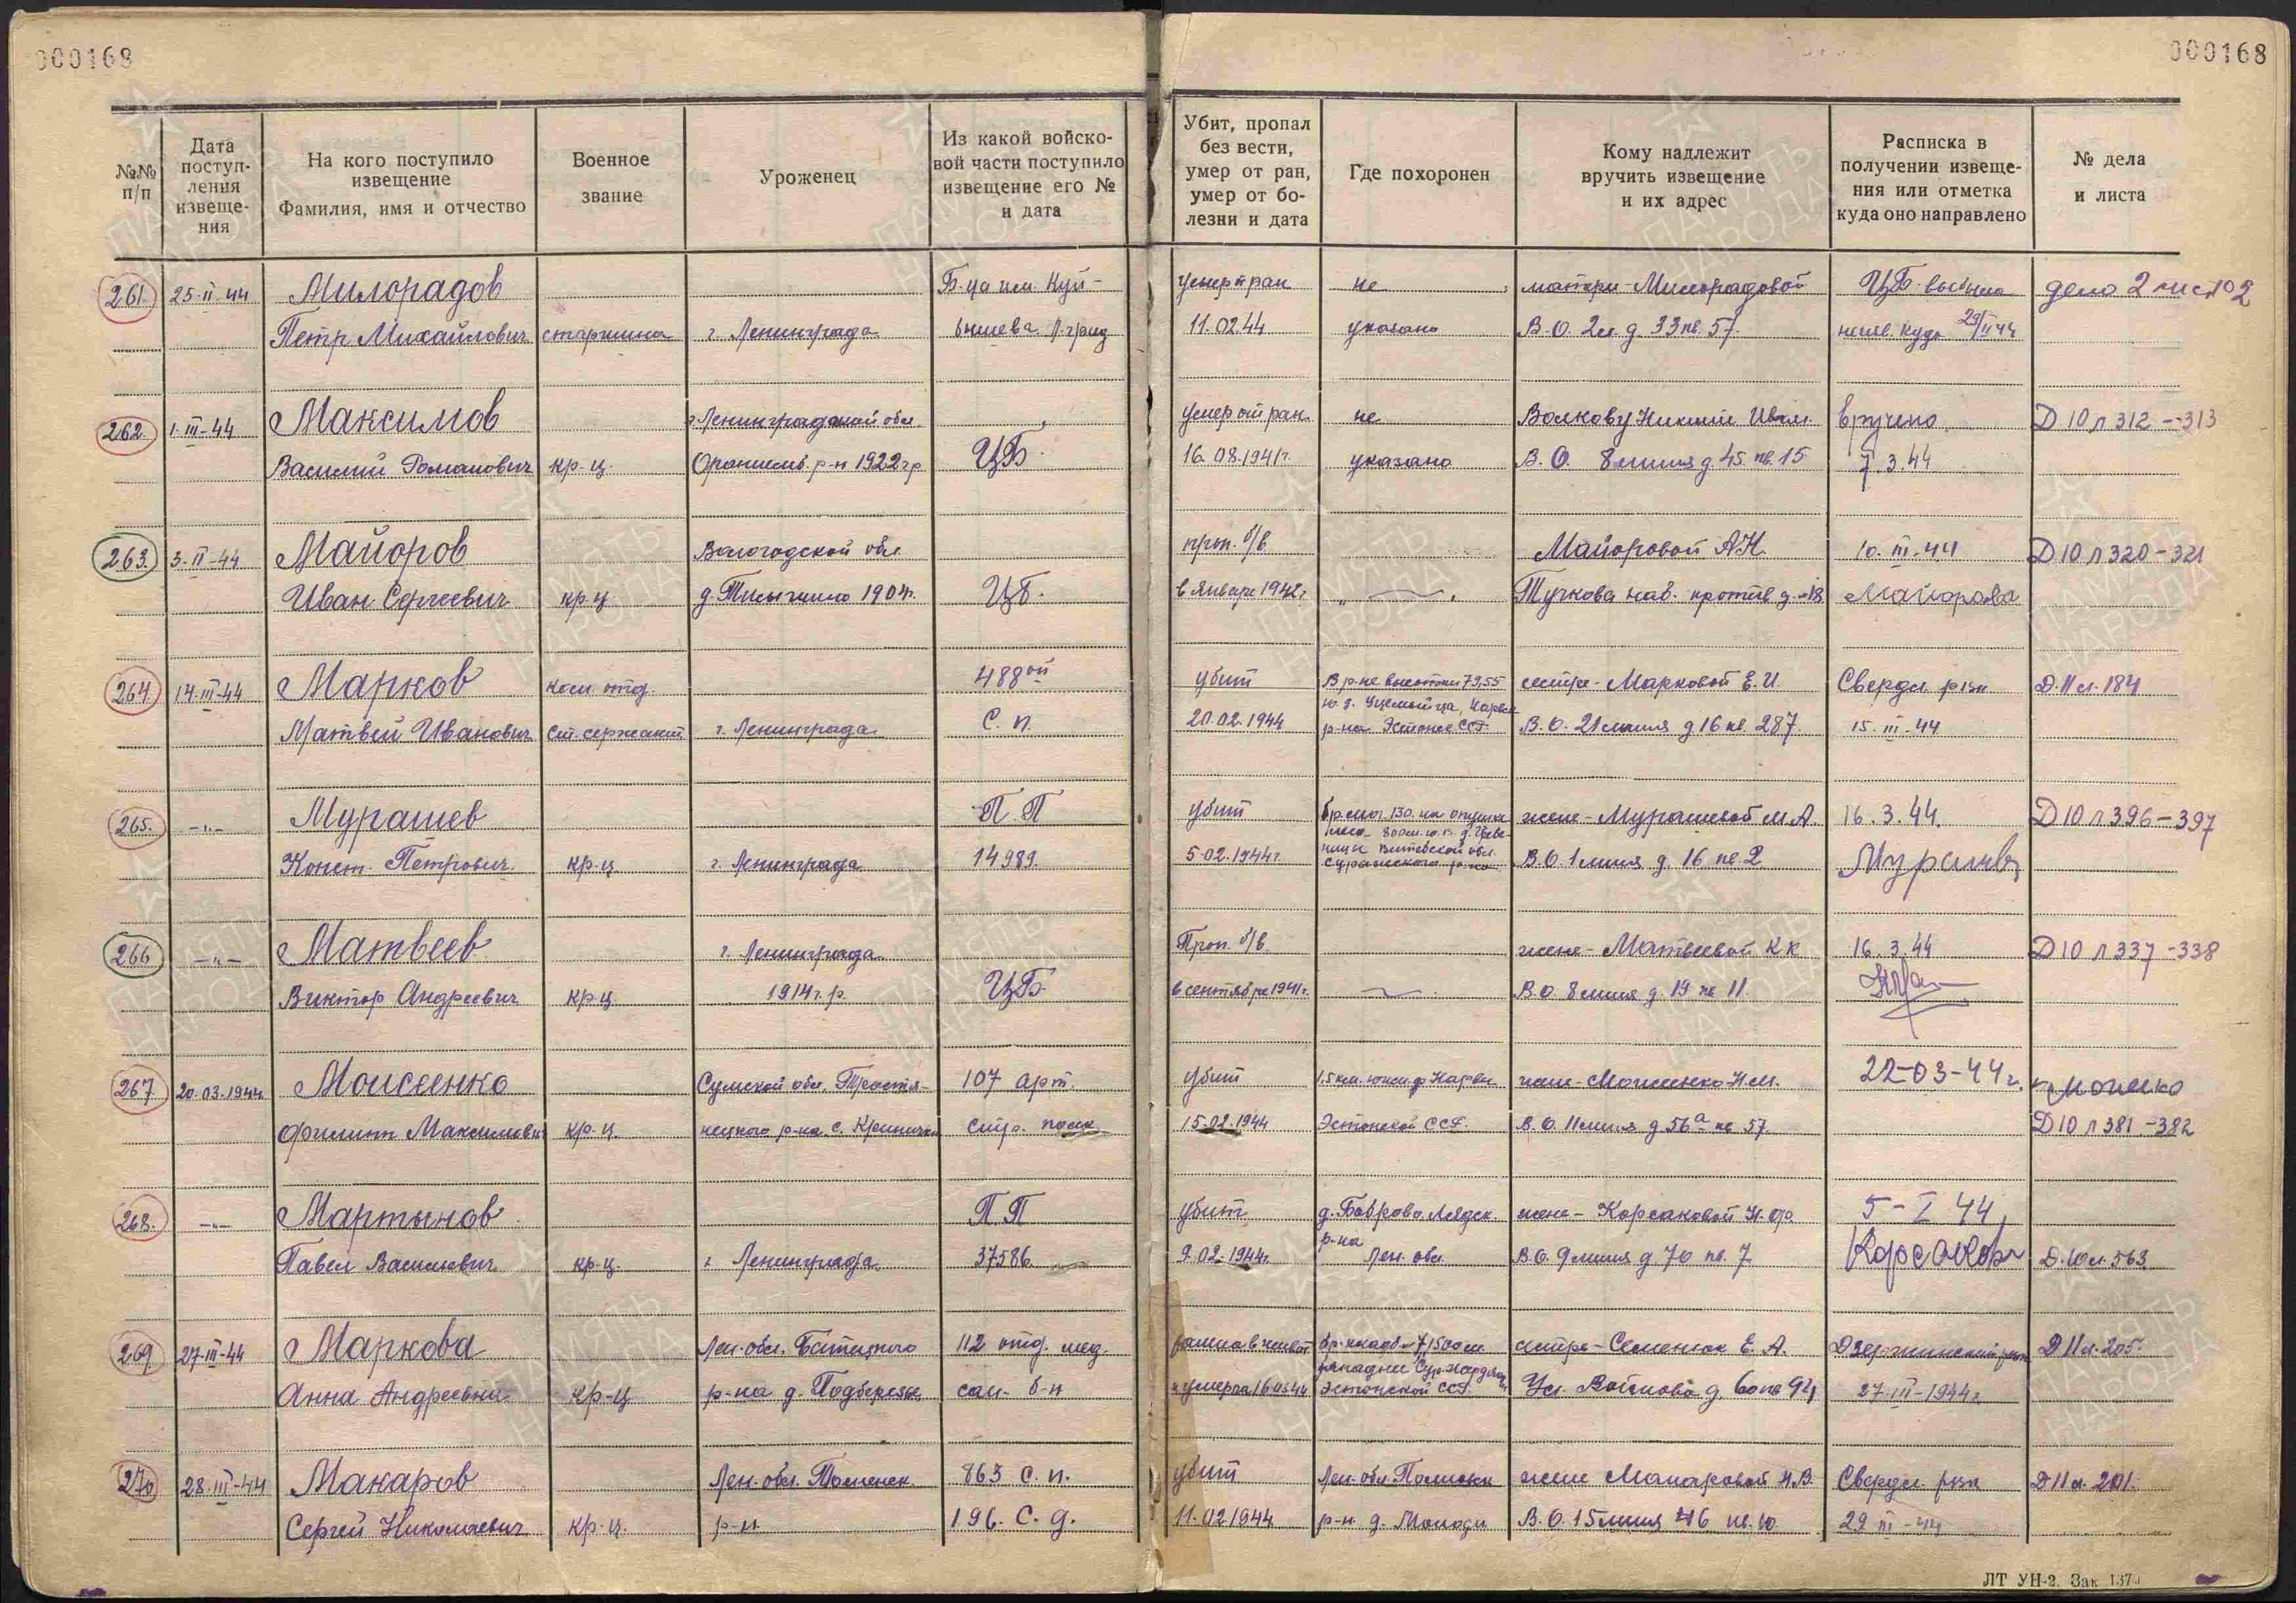 000168
000168
№№ п/п
Дата поступ-ления извеще-ния
На кого поступило извещение Фамилия, имя и отчество
Военное звание
Уроженец
Из какой войско-вой части поступило извещение его № и дата
Убит, пропал без вести, умер от ран, умер от бо-лезни и дата
Где похоронен
Кому надлежит вручить извещение и их адрес
Расписка в получении извеще-ния или отметка куда оно направлено
№ дела и листа
261. 25-II-44 Милорадов Б-ца им. Куй- умер от ран не матери - Милорадовой ЦБ дело 2 лист 102
Петр Михайлович старшина г. Ленинграда бышева Л-град 11.02.44 указано В.О. 2 л. д. 33 кв. 57. куда 29/II 44
262. 1-III-44 Максимов Ленинградской обл. умер от ран не Волкову вручено Д 10 л 312-313
Василий Романович кр-ц. Ораниенб. р-н 1922 г.р ЦБ. 16.08.1941г. указано В.О. 8 линия д. 45 кв. 15 7.3.44
263. 3-II-44 Майоров Вологодской обл. проп. б/в Майоровой А.Н. 10.III-44 Д 10 л 320-321
Иван Сергеевич кр-ц д. 1904г. ЦБ. в январе 1942г. Тучкова наб. против д. 18 Майорова
264. 14-III-44 Марков ком. отд. 488ой убит В р-не высотки 79,55 сестре - Марковой Е.И. Свердл. рвк Д. 11 л. 184
Матвей Иванович ст. сержант г. Ленинграда С.П. 20.02.1944 р-на Эстонс. ССР. В.О. 21 линия д 16 кв. 287. 15-III-44
265. -"- Мурашев П.П убит бр. мог. 130. на опушке жене - Мурашевой М.А. 16.3.44. Д 10 л 396-397
леса 800 м. ю.в. д.
Конст. Петрович кр-ц г. Ленинграда 14989. 5-02.1944г. Витебской обл. В.О. 1 линия д. 16 кв 2
Суражского р-на
266 -"- Матвеев г. Ленинграда Проп. б/в. жене - Матвеевой К К 16.3.44 Д 10 л 337-338
Виктор Андреевич кр-ц. 1914 г.р. ЦБ в сентябре 1941г. В.О. 8 линия д. 19 кв 11.
267. 20.03.1944 Моисеенко Сумской обл. Тростя- 107 арт. убит 1,5 км. южн. г. Нарвы жене - Моисеенко Н.М. 22-03-44 г.
Филипп Максимович кр-ц. нецкого р-на с. Криничка стр. полк 15.02.1944 Эстонской ССР. В.О. 11 линия д 56а кв 57. Д 10 л 381-382
268. -"- Мартынов П П убит д. Боброво Лядск. жене - Корсаковой Н.Ф. 5-I 44
р-на
Павел Васильевич кр-ц. г. Ленинграда 37586 9.02.1944г. Лен. обл. В.О. 9 линия д 70 кв. 7 Корсакова Д. 10 л. 563
269. 27-III-44 Маркова Лен. обл. Батецкого 112 отд. мед ранена в живот сестре - Семенюк Е.А. Дзержинский рвк Д 11 л. 205.
Анна Андреевна кр-ц р-на д. Подберезье сан. б-н и умерла Эстонской ССР. Ул. Войнова д. 60 кв 94 27-III-1944г.
270 28-III-44 Макаров Лен. обл. 863 с.п. убит Лен. обл. жене Макаровой Н.В. Свердл. рвк Д 11 л. 201.
Сергей Николаевич кр-ц. р-н 196. С.д. 11.02.1944 р-н д. Молоди В.О. 15 линия 46 кв. 10 29 III-44
ЛТ УН-2. Зак 137